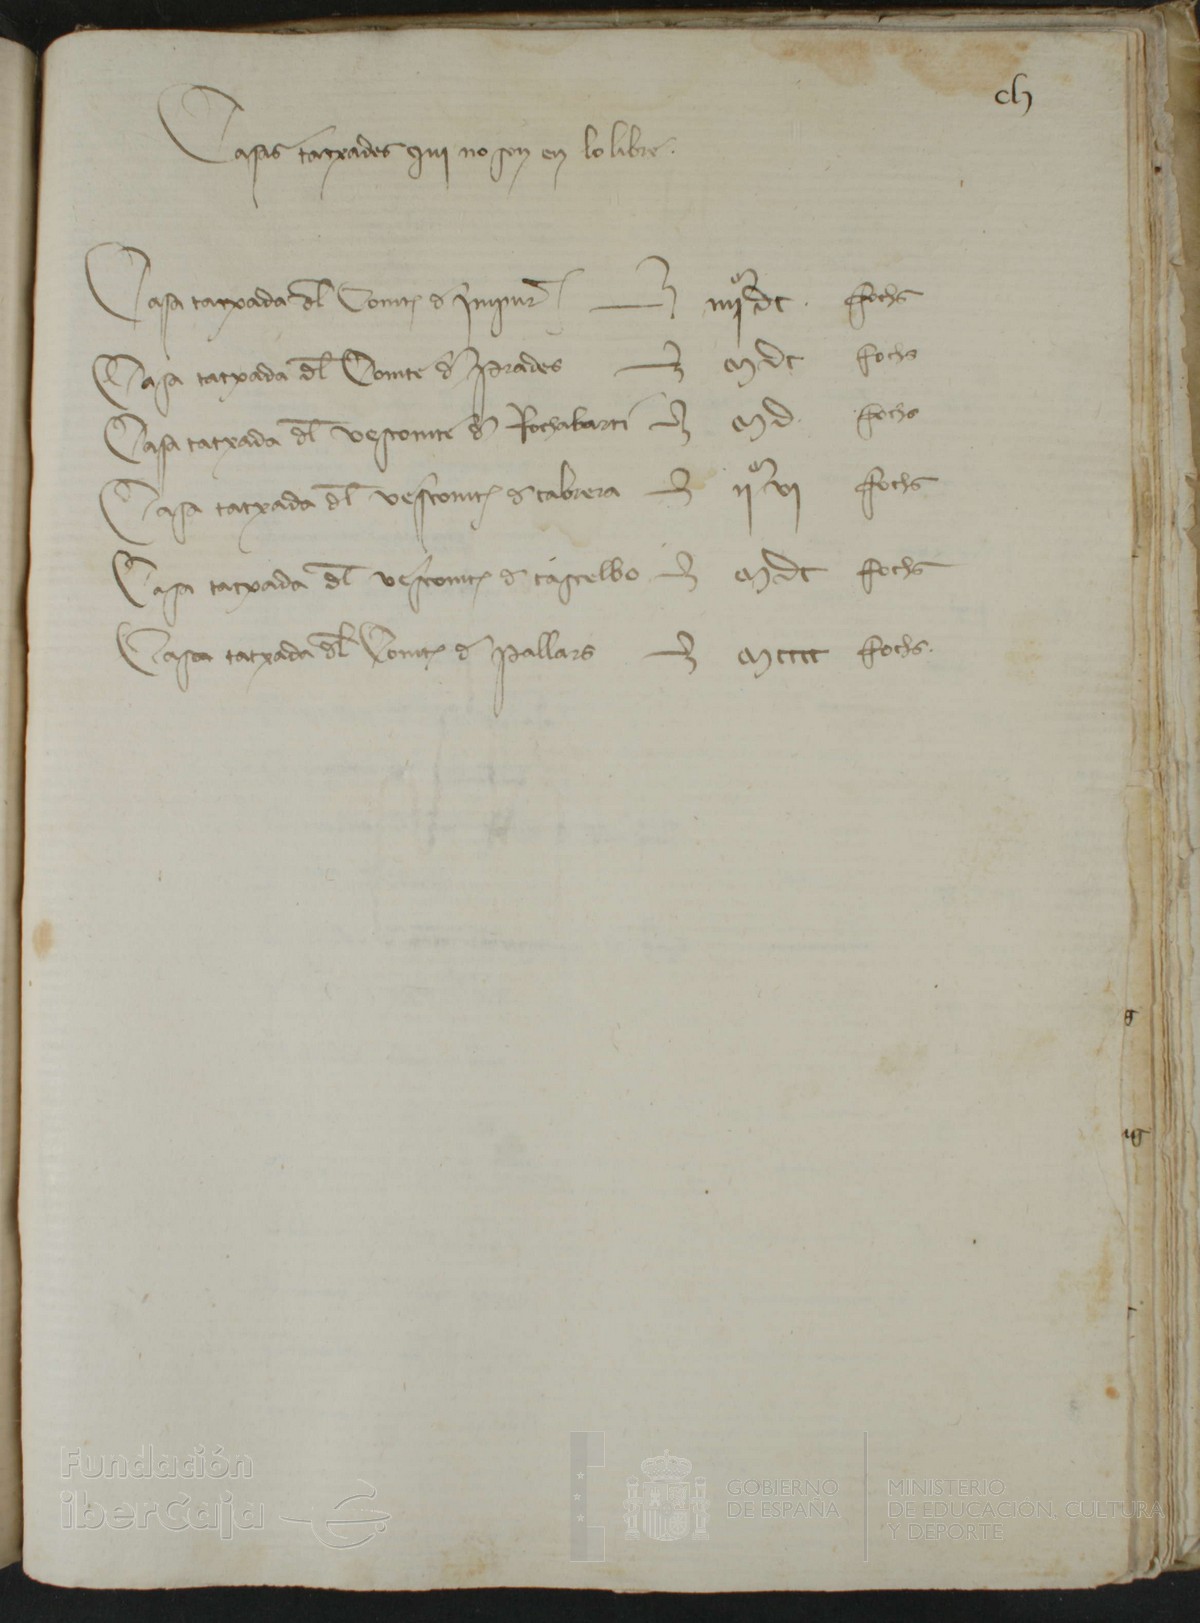 clj
Casas tatxades qui no son en lo libre.
Casa tatxada dl Comte d Impur iiijͫ dc. fochs
Casa tatxada dl Comte d Prades m dc fochs
Casa tatxada dl vescomte d Rochabarti m d. fochs
Casa tatxada dl vescomte d cabrera ijͫ vi fochs
Casa tatxada dl vescomte d castelbo m dc fochs
Casa tatxada dl Comte d Pallars m cccc fochs.
Fundación
iberCaja
GOBIERNO
DE ESPAÑA
MINISTERIO
DE EDUCACIÓN, CULTURA
Y DEPORTE